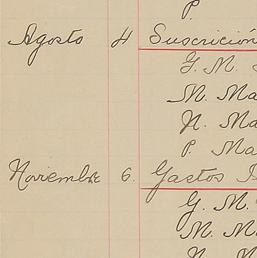 P.
Agosto 4 Suscrición
G. M.
M. Ma
N. Ma
P. Ma
Noviembre 6. Gastos
G. M.
M. M.